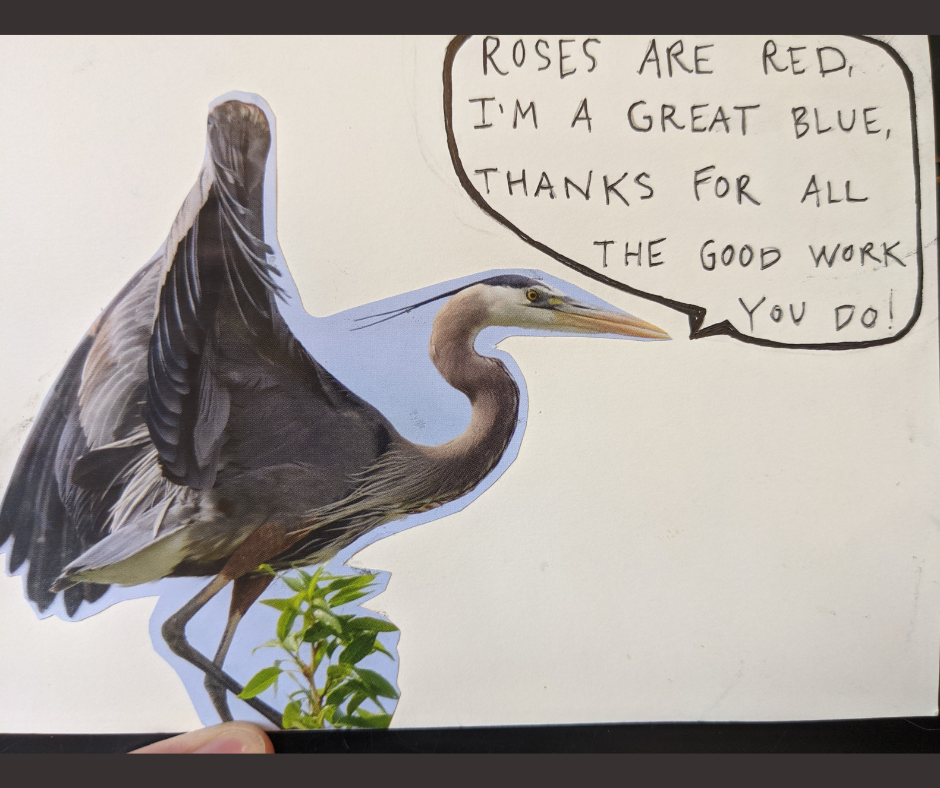 ROSES ARE RED,
I'M A GREAT BLUE,
THANKS FOR ALL
THE GOOD WORK
YOU DO!